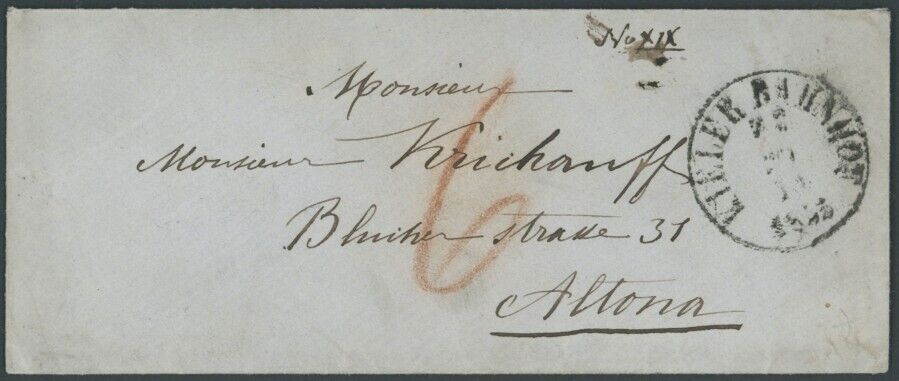 No XIX
Monsieur
Monsieur Krichauff
Blucher strasse 31
Altona
6
KIELER BAHNHOF